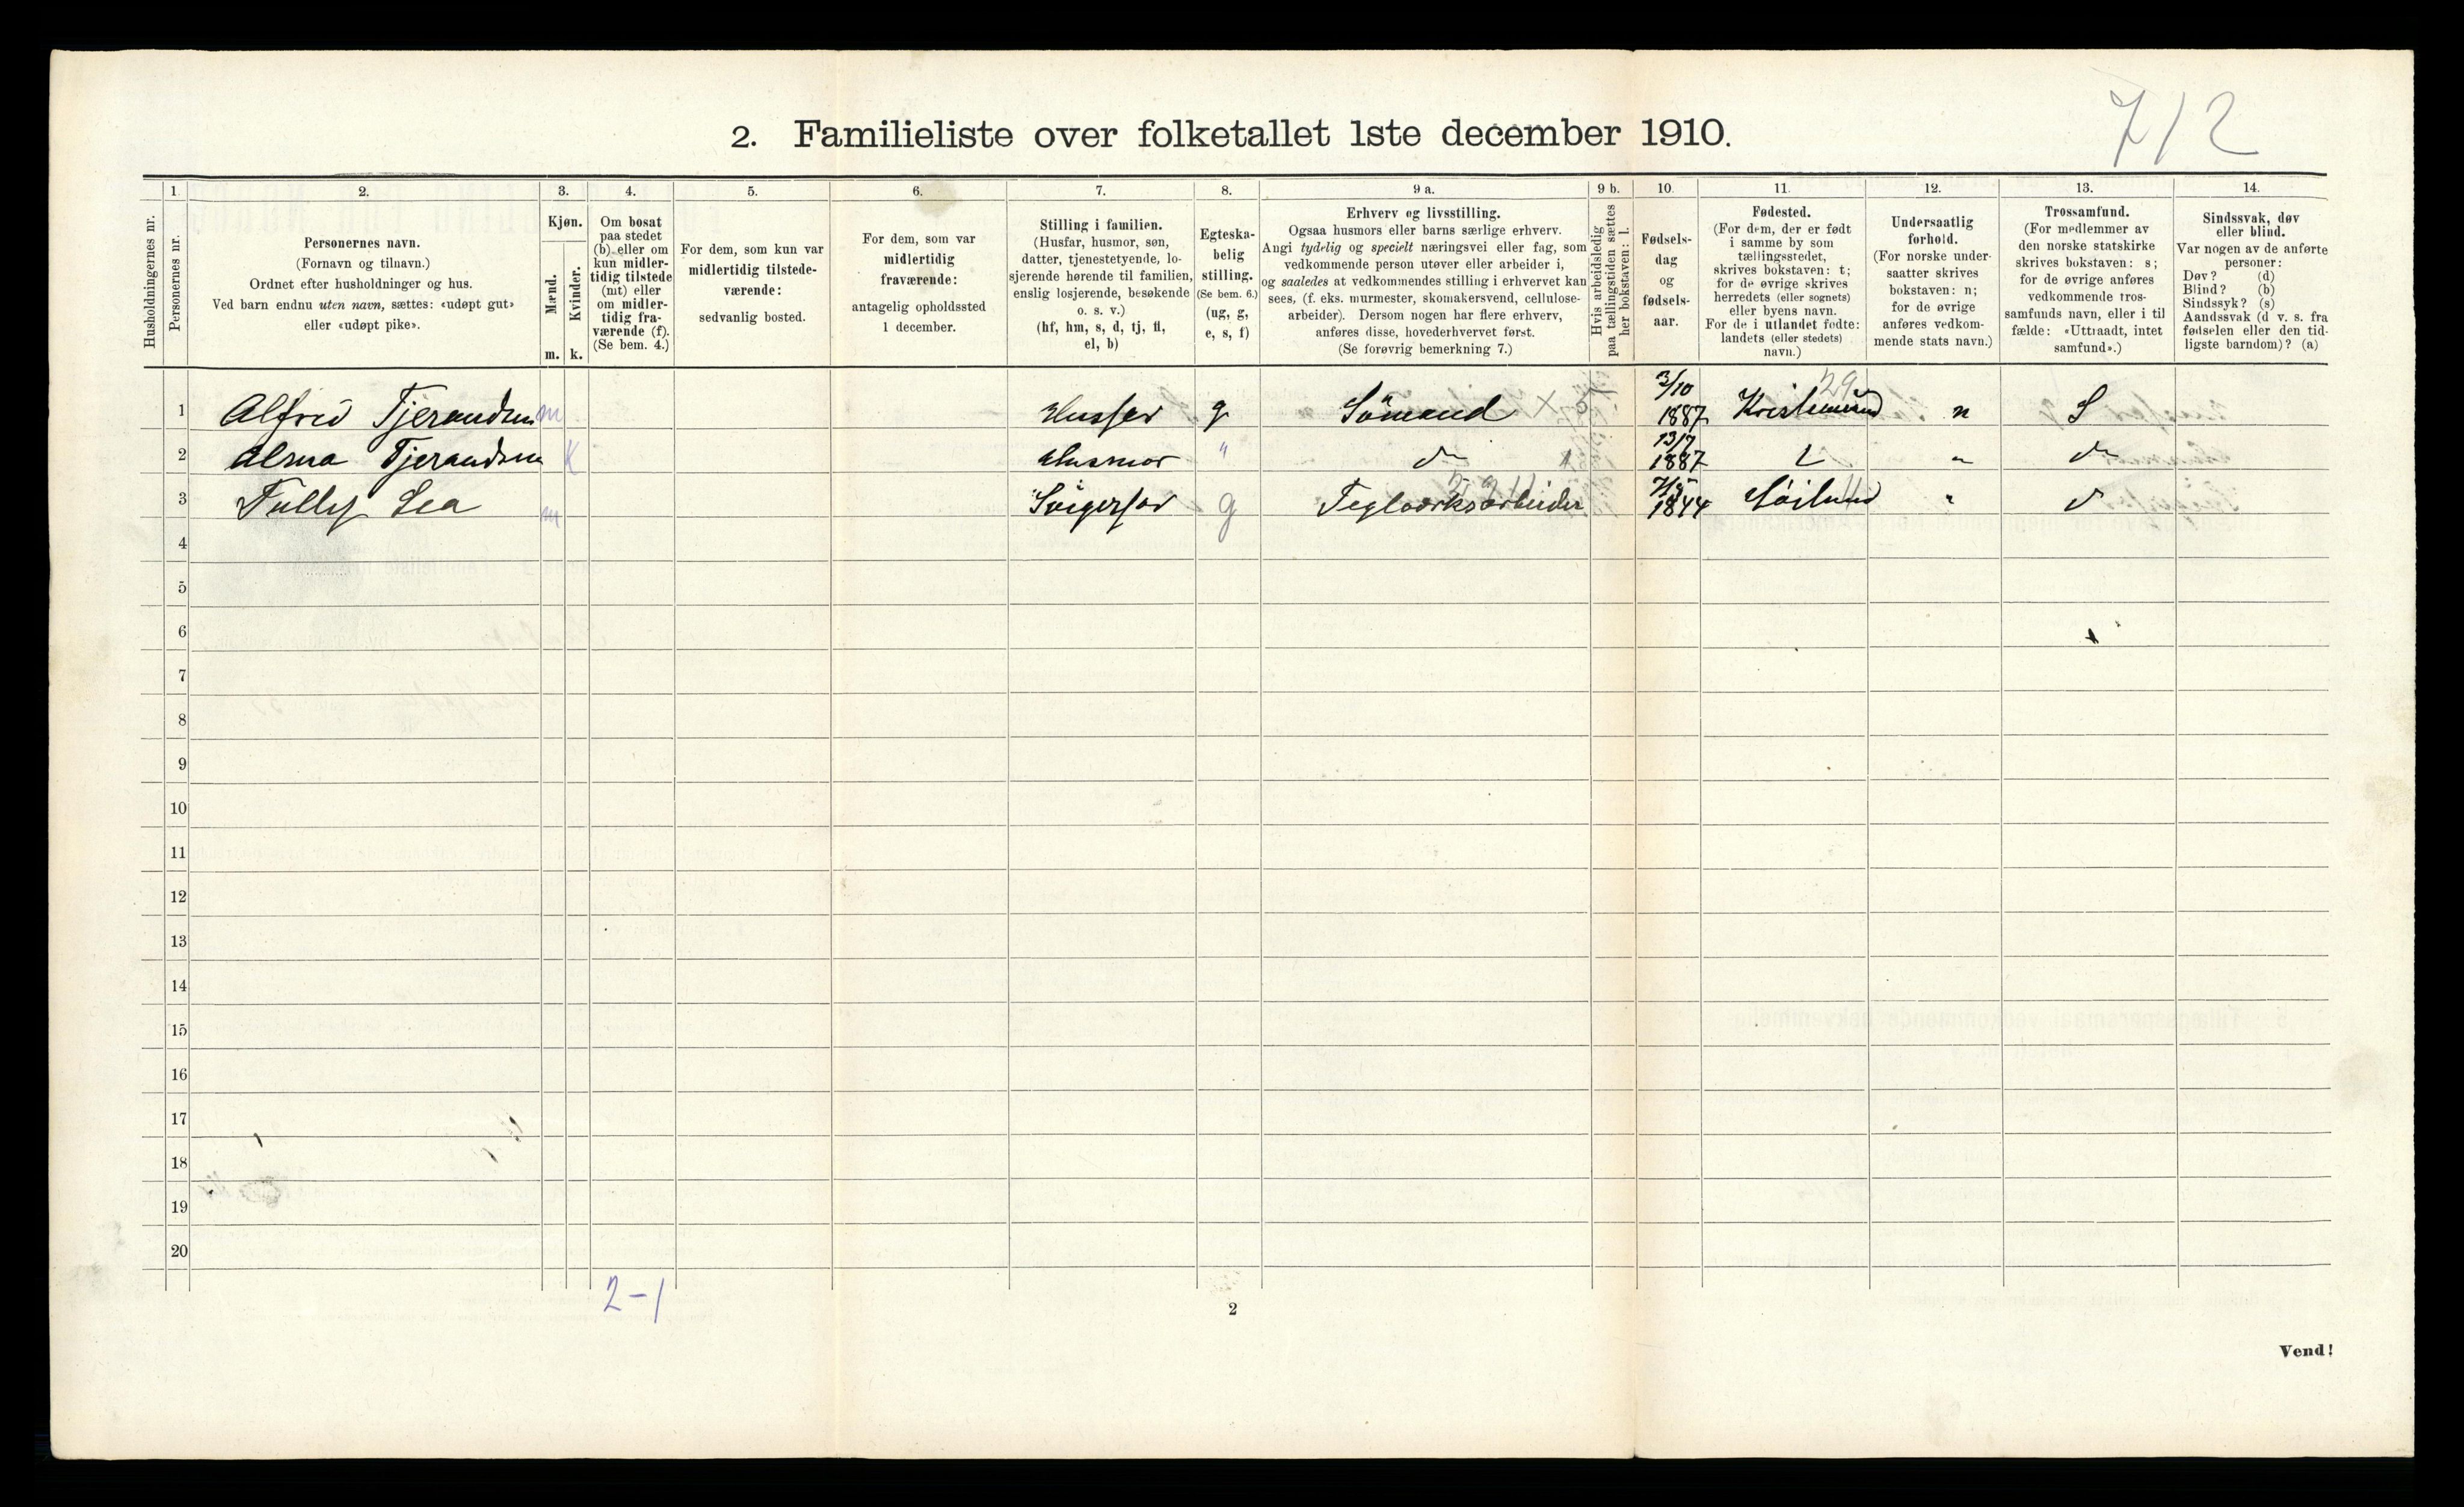 712
2. Familieliste over folketallet 1ste december 1910.
1. 2. 3. 4. 5. 6. 7. 8. 9 a. 9 b. 10. 11. 12. 13. 14.
Husholdningernes nr.
Personernes nr.
Personernes navn.
(Fornavn og tilnavn.)
Ordnet efter husholdninger og hus.
Ved barn endnu uten navn, sættes: «udøpt gut»
eller «udøpt pike».
Kjøn.
Mænd.
Kvinder.
m. k.
Om bosat
paa stedet
(b) eller om
kun midler-
tidig tilstede
(mt) eller
om midler-
tidig fra-
værende (f).
(Se bem. 4.)
For dem, som kun var
midlertidig tilstede-
værende:
sedvanlig bosted.
For dem, som var
midlertidig
fraværende:
antagelig opholdssted
1 december.
Stilling i familien.
(Husfar, husmor, søn,
datter, tjenestetyende, lo-
sjerende hørende til familien,
enslig losjerende, besøkende
o. s. v.)
(hf, hm, s, d, tj, fl,
el, b)
Egteska-
belig
stilling.
(Se bem. 6.)
(ug, g,
e, s, f)
Erhverv og livsstilling.
Ogsaa husmors eller barns særlige erhverv.
Angi tydelig og specielt næringsvei eller fag, som
vedkommende person utøver eller arbeider i,
og saaledes at vedkommendes stilling i erhvervet kan
sees, (f. eks. murmester, skomakersvend, cellulose-
arbeider). Dersom nogen har flere erhverv,
anføres disse, hovederhvervet først.
(Se forøvrig bemerkning 7.)
Hvis arbeidsledig
paa tællingstiden sættes
her bokstaven: l.
Fødsels-
dag
og
fødsels-
aar.
Fødested.
(For dem, der er født
i samme by som
tællingsstedet,
skrives bokstaven: t;
for de øvrige skrives
herredets (eller sognets)
eller byens navn.
For de i utlandet fødte:
landets (eller stedets)
navn.)
Undersaatlig
forhold.
(For norske under-
saatter skrives
bokstaven: n;
for de øvrige
anføres vedkom-
mende stats navn.)
Trossamfund.
(For medlemmer av
den norske statskirke
skrives bokstaven: s;
for de øvrige anføres
vedkommende tros-
samfunds navn, eller i til
fælde: «Uttraadt, intet
samfund».)
Sindssvak, døv
eller blind.
Var nogen av de anførte
personer:
Døv? (d)
Blind? (b)
Sindssyk? (s)
Aandssvak (d v. s. fra
fødselen eller den tid-
ligste barndom)? (a)
1 Alfred Tjerandsen m Husfar g Sømand X 3/10 1887 Kristiansund 29 n S
2 Alma Tjerandsen K Husmor " do 13/7 1887 t " do
3 Tully Lea m Svigerfar g Teglverksarbeider 1844 " do
4
5
6
7
8
9
10
11
12
13
14
15
16
17
18
19
20
2-1
2
Vend!